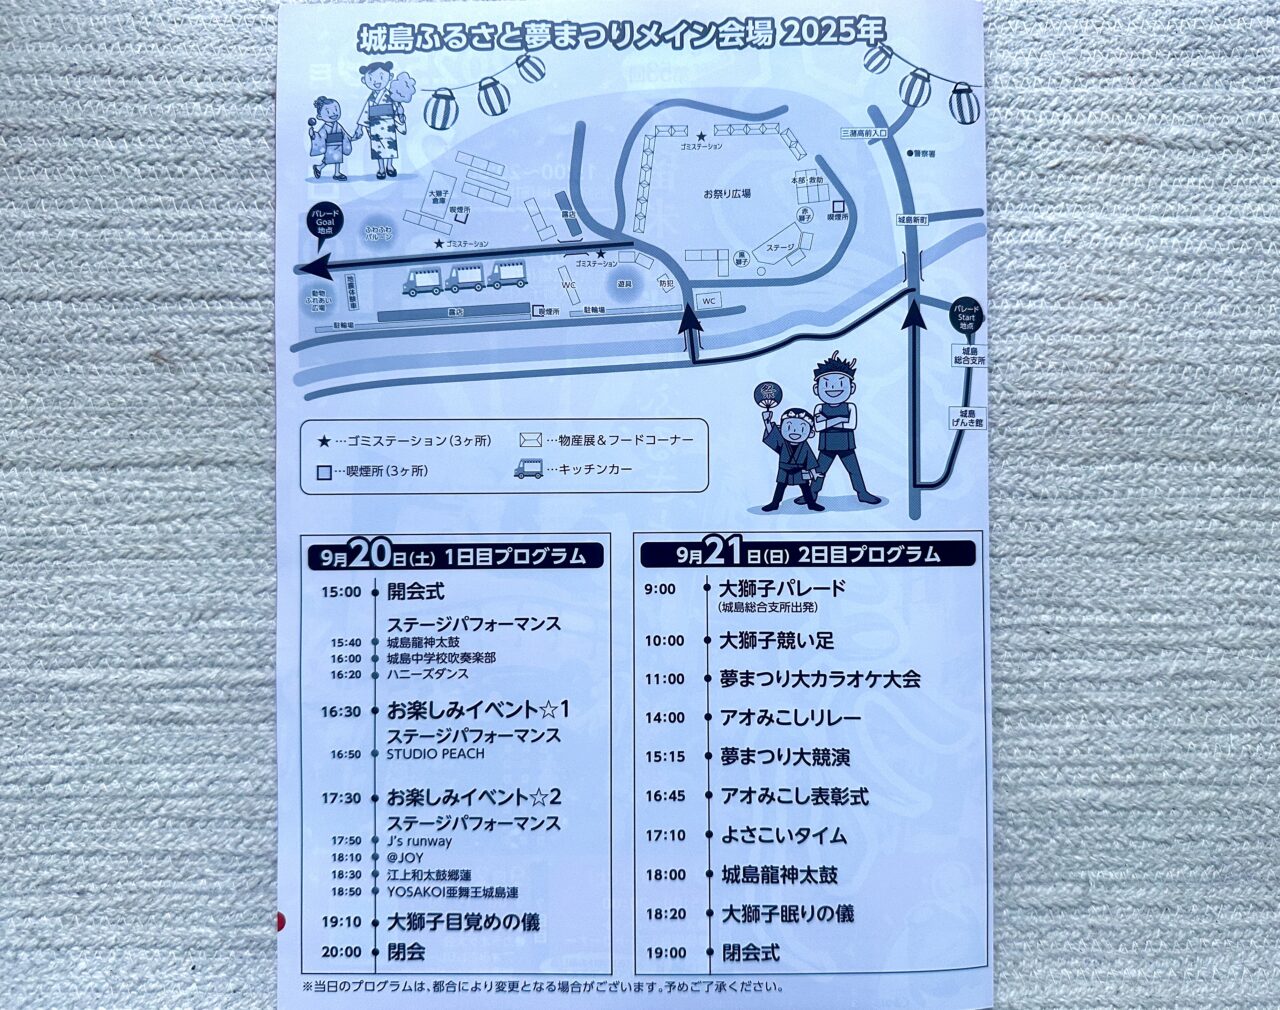 城島ふるさと夢まつりメイン会場 2025年
三潴高前入口
警察署
ゴミステーション
お祭り広場
本部・救助
喫煙所
赤獅子
城島新町
ステージ
黒獅子
大獅子倉庫
喫煙所
露店
パレード
Goal
地点
ふわふわ
バルーン
ゴミステーション
ゴミステーション
動物
ふれあい
広場
地震体験車
WC
遊具
防犯
WC
露店
喫煙所
駐輪場
駐輪場
パレード
Start
地点
城島
総合支所
城島
げんき館
祭
★…ゴミステーション(3ヶ所)
…物産展&フードコーナー
…喫煙所(3ヶ所)
…キッチンカー
9月20日(土) 1日目プログラム
15:00 開会式
ステージパフォーマンス
15:40 城島龍神太鼓
16:00 城島中学校吹奏楽部
16:20 ハニーズダンス
16:30 お楽しみイベント☆1
ステージパフォーマンス
16:50 STUDIO PEACH
17:30 お楽しみイベント☆2
ステージパフォーマンス
17:50 J's runway
18:10 @JOY
18:30 江上和太鼓郷蓮
18:50 YOSAKOI亜舞王城島連
19:10 大獅子目覚めの儀
20:00 閉会
9月21日(日) 2日目プログラム
9:00 大獅子パレード
(城島総合支所出発)
10:00 大獅子競い足
11:00 夢まつり大カラオケ大会
14:00 アオみこしリレー
15:15 夢まつり大競演
16:45 アオみこし表彰式
17:10 よさこいタイム
18:00 城島龍神太鼓
18:20 大獅子眠りの儀
19:00 閉会式
※当日のプログラムは、都合により変更となる場合がございます。予めご了承ください。